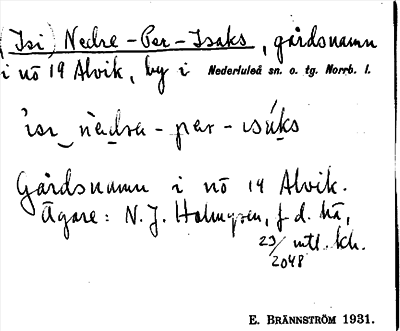 (Isi) Nedre-Per-Isaks, gårdsnamn
i nō 19 Alvik, by i Nederluleå sn. o. tg. Norrb. l.
ìsɩ nèdra - pær - ɩsáks
Gårdsnamn i nō 19 Alvik.
Ägare: N. J. Holmgren, f. d. hä,
23/2048 mtl. kh.
E. BRÄNNSTRÖM 1931.